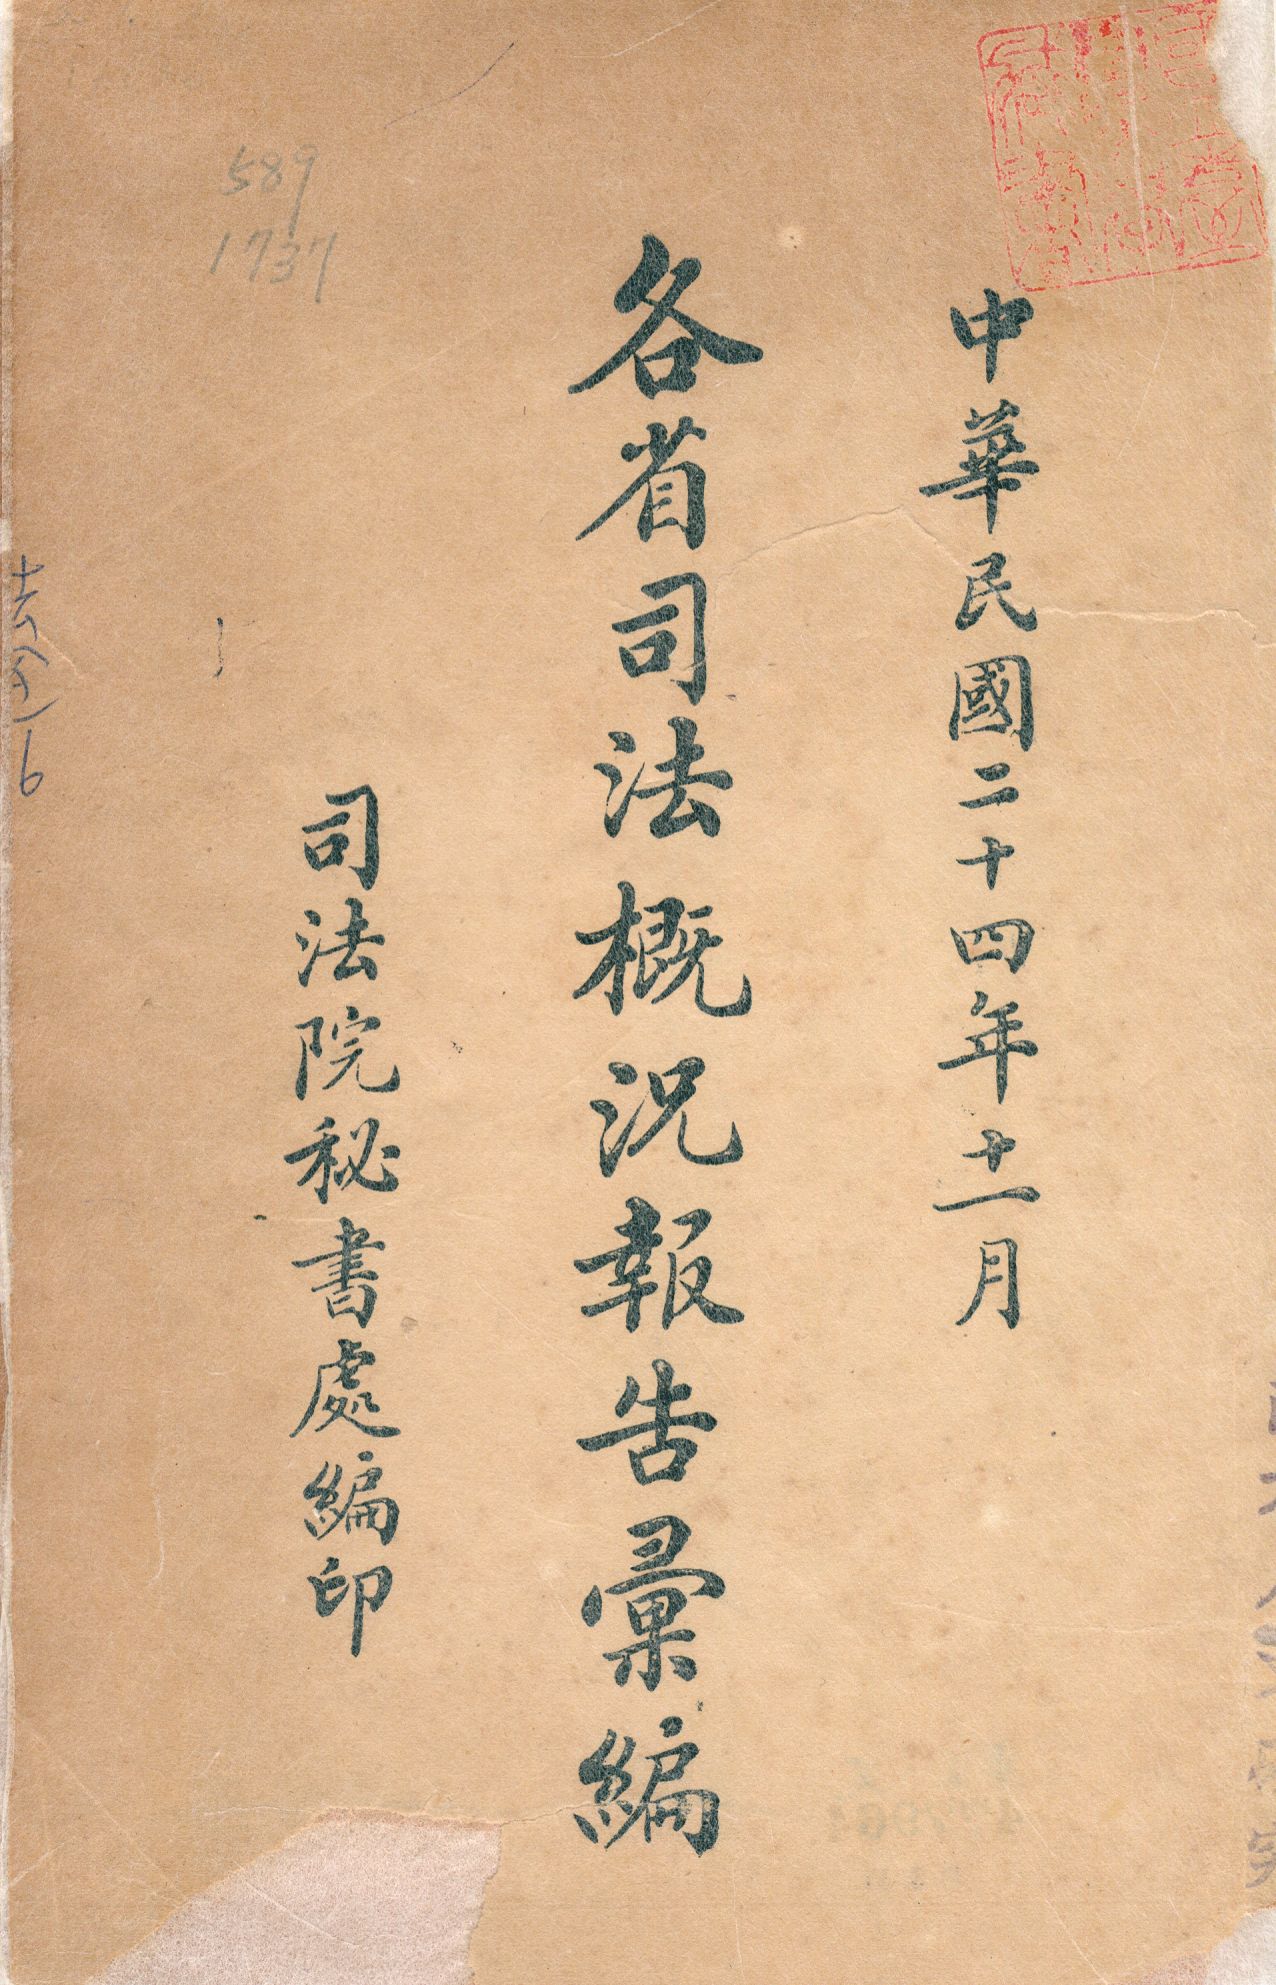 中華民國二十四年十一月
各省司法概況報告彙編
司法院秘書處編印
589
1737